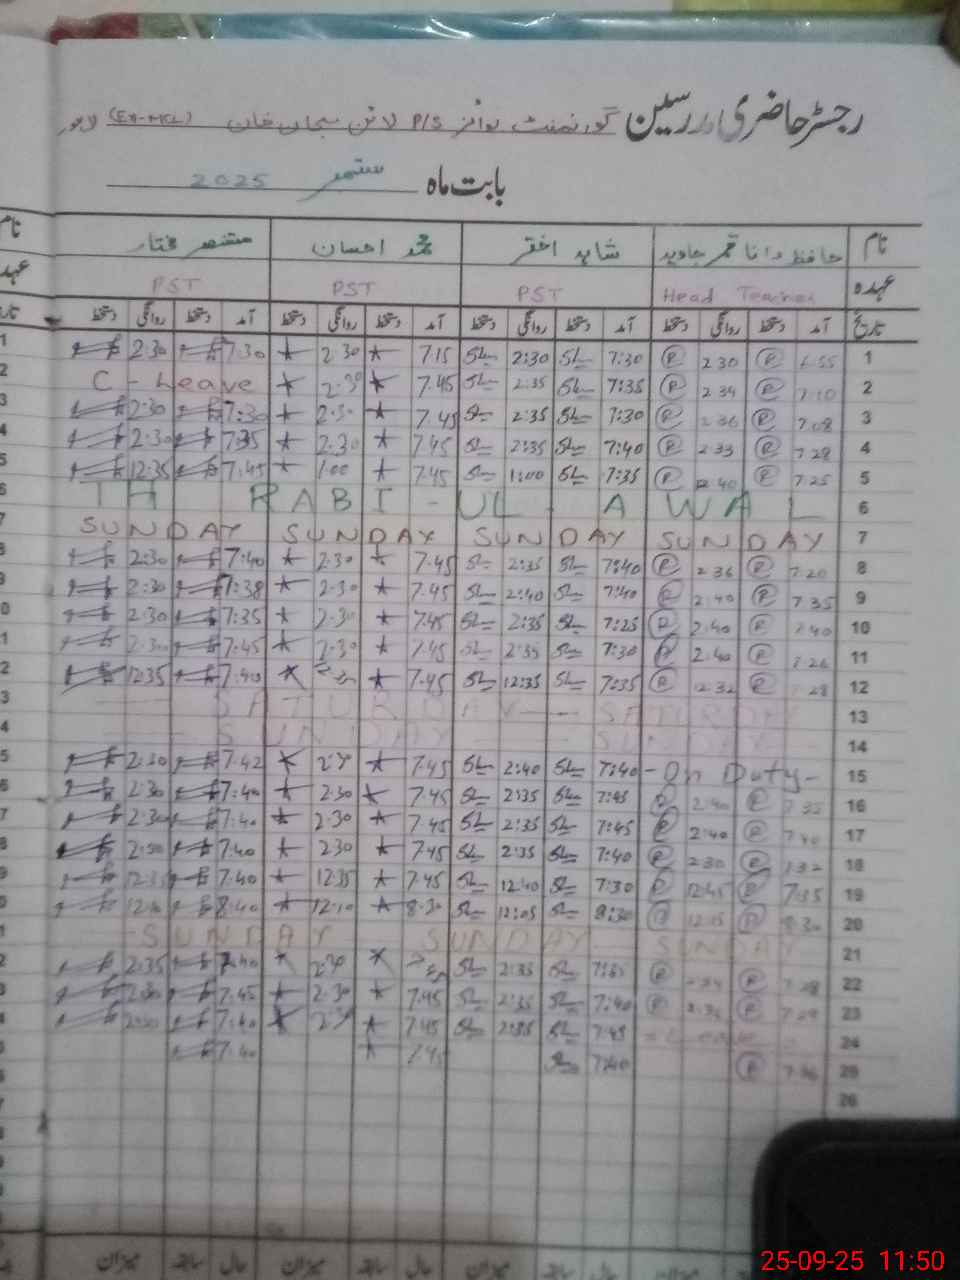 رجسٹر حاضری مدرسین گورنمنٹ بوائز P/S لائن سبحان خان (EX-MCL) لاہور
بابت ماہ ستمبر 2025
نام حافظ رانا قمر جاوید شاہد اختر محمد احسان
عہدہ Head Teacher PST PST PST
تاریخ آمد دستخط روانگی دستخط آمد دستخط روانگی دستخط آمد دستخط روانگی دستخط آمد دستخط روانگی دستخط
2:30 7:30 2:30 7:15 2:30 7:30 2:30 6:55 1
C - Leave 2:30 7.45 2:35 7:35 2 34 7:10 2
2:30 7:30 2:30 7.45 2:35 7:30 2 36 7.08 3
2:30 7:35 2:30 7.45 2:35 7:40 2 33 7.28 4
12:35 7:45 1:00 7.45 1:00 7:35 12 40 7.25 5
TH RABI - UL - AWAL 6
SUNDAY SUNDAY SUNDAY SUNDAY 7
2:30 7:40 2:30 7.45 2:35 7:40 2 36 7.20 8
2:30 7:38 2:30 7.45 2:40 7:40 2:40 7.35 9
2:30 7:35 2:30 7.45 2:35 7:25 2:40 7.40 10
2:30 7:45 2:30 7.45 2:35 7:30 2:40 7.26 11
12:35 7:40 7.45 12:35 7:35 12:32 7.28 12
SATURDAY SATURDAY 13
SUNDAY SUNDAY 14
2:30 7:42 7.45 2:40 7:40 - On Duty - 15
2:30 7:40 2:30 7.45 2:35 7:45 2:40 7.35 16
2:30 7:40 2:30 7.45 2:35 7:45 2:40 7.40 17
7:40 2:30 7.45 2:35 7:40 2:30 7.32 18
12:35 7:40 12:35 7.45 12:40 7:30 12:45 7:35 19
8:40 12:10 8:30 12:05 8:30 12:15 8:30 20
SUNDAY SUNDAY SUNDAY 21
2:35 7:40 2:35 22
2:30 7:45 2:30 7.45 2:35 7:40 23
7:40 7.45 2:35 7:45 Leave 24
7:40 7:45 7:40 7:36 25
26
میزان سابقہ حال میزان سابقہ حال میزان
25-09-25 11:50